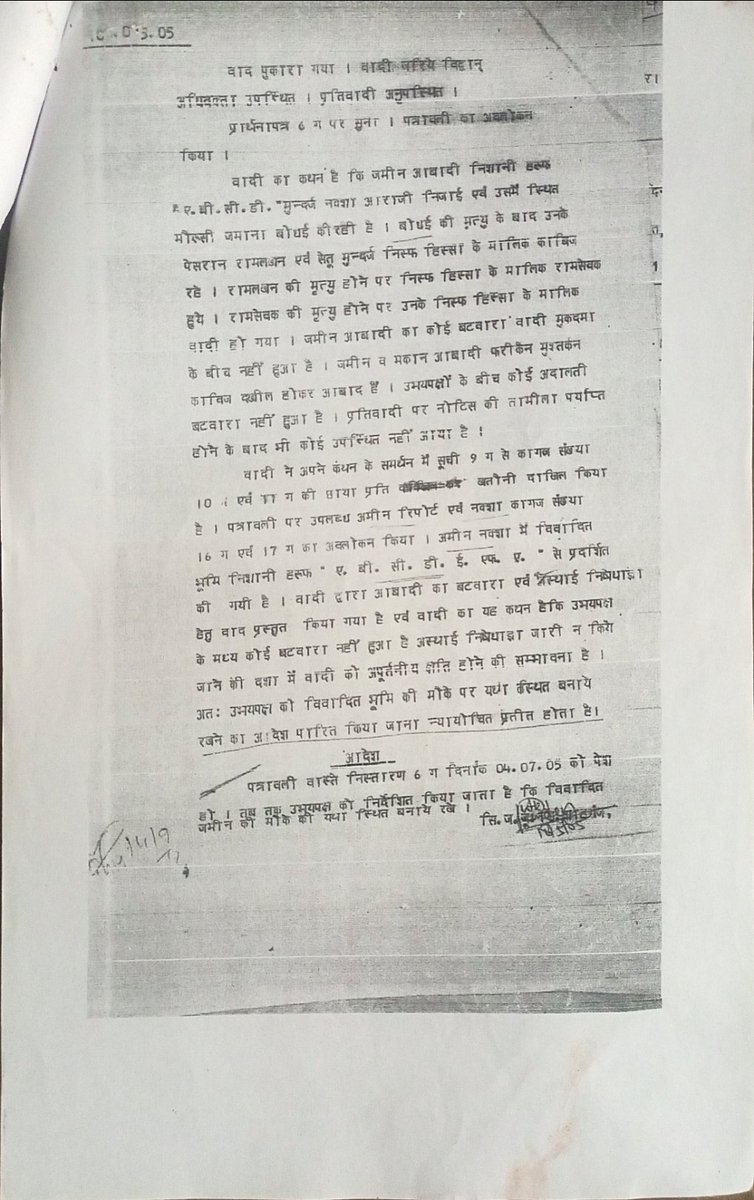 0.05
वाद पुकारा गया । वादी जरिये विद्वान्
अधिवक्ता उपस्थित । प्रतिवादी अनुपस्थित ।
प्रार्थनापत्र 6 ग पर सुना । पत्रावली का अवलोकन
किया ।
वादी का कथन है कि जमीन आबादी निशानी हरूफ
"ए.बी.सी.डी. "मुन्दर्ज नक्शा आराजी निजाई एवं उसमें स्थित
मौरूसी जमाना बोधई की रही है । बोधई की मृत्यु के बाद उनके
पेसरान रामलखन एवं सेतू मुन्दर्ज निस्फ हिस्सा के मालिक काबिज
रहे । रामलखन की मृत्यु होने पर निस्फ हिस्सा के मालिक रामसेवक
हुये । रामसेवक की मृत्यु होने पर उनके निस्फ हिस्सा के मालिक
वादी हो गया । जमीन आबादी का कोई बटवारा वादी मुकदमा
के बीच नहीं हुआ है । जमीन व मकान आबादी फरीकैन मुश्तर्कन
काबिज दखील होकर आबाद हैं । उभयपक्षों के बीच कोई अदालती
बटवारा नहीं हुआ है । प्रतिवादी पर नोटिस की तामीला पर्याप्त
होने के बाद भी कोई उपस्थित नहीं आया है ।
वादी ने अपने कथन के समर्थन में सूची 9 ग से कागज संख्या
10 एवं 11 ग की छाया प्रति खतौनी दाखिल किया
है । पत्रावली पर उपलब्ध अमीन रिपोर्ट एवं नक्शा कागज संख्या
16 ग एवं 17 ग का अवलोकन किया । अमीन नक्शा में विवादित
भूमि निशानी हरूफ " ए. बी. सी. डी. ई. एफ. ए. " से प्रदर्शित
की गयी है । वादी द्वारा आबादी का बटवारा एवं अस्थाई निषेधाज्ञा
हेतु वाद प्रस्तुत किया गया है एवं वादी का यह कथन है कि उभयपक्ष
के मध्य कोई बटवारा नहीं हुआ है अस्थाई निषेधाज्ञा जारी न किये
जाने की दशा में वादी को अपूर्तनीय क्षति होने की सम्भावना है ।
अतः उभयपक्ष को विवादित भूमि की मौके पर यथा स्थित बनाये
रखने का आदेश पारित किया जाना न्यायोचित प्रतीत होता है।
आदेश
पत्रावली वास्ते निस्तारण 6 ग दिनांक 04.07.05 को पेश
हो । तब तक उभयपक्ष को निर्देशित किया जाता है कि विवादित
जमीन की मौके की यथा स्थित बनाये रखे ।
सि.ज.